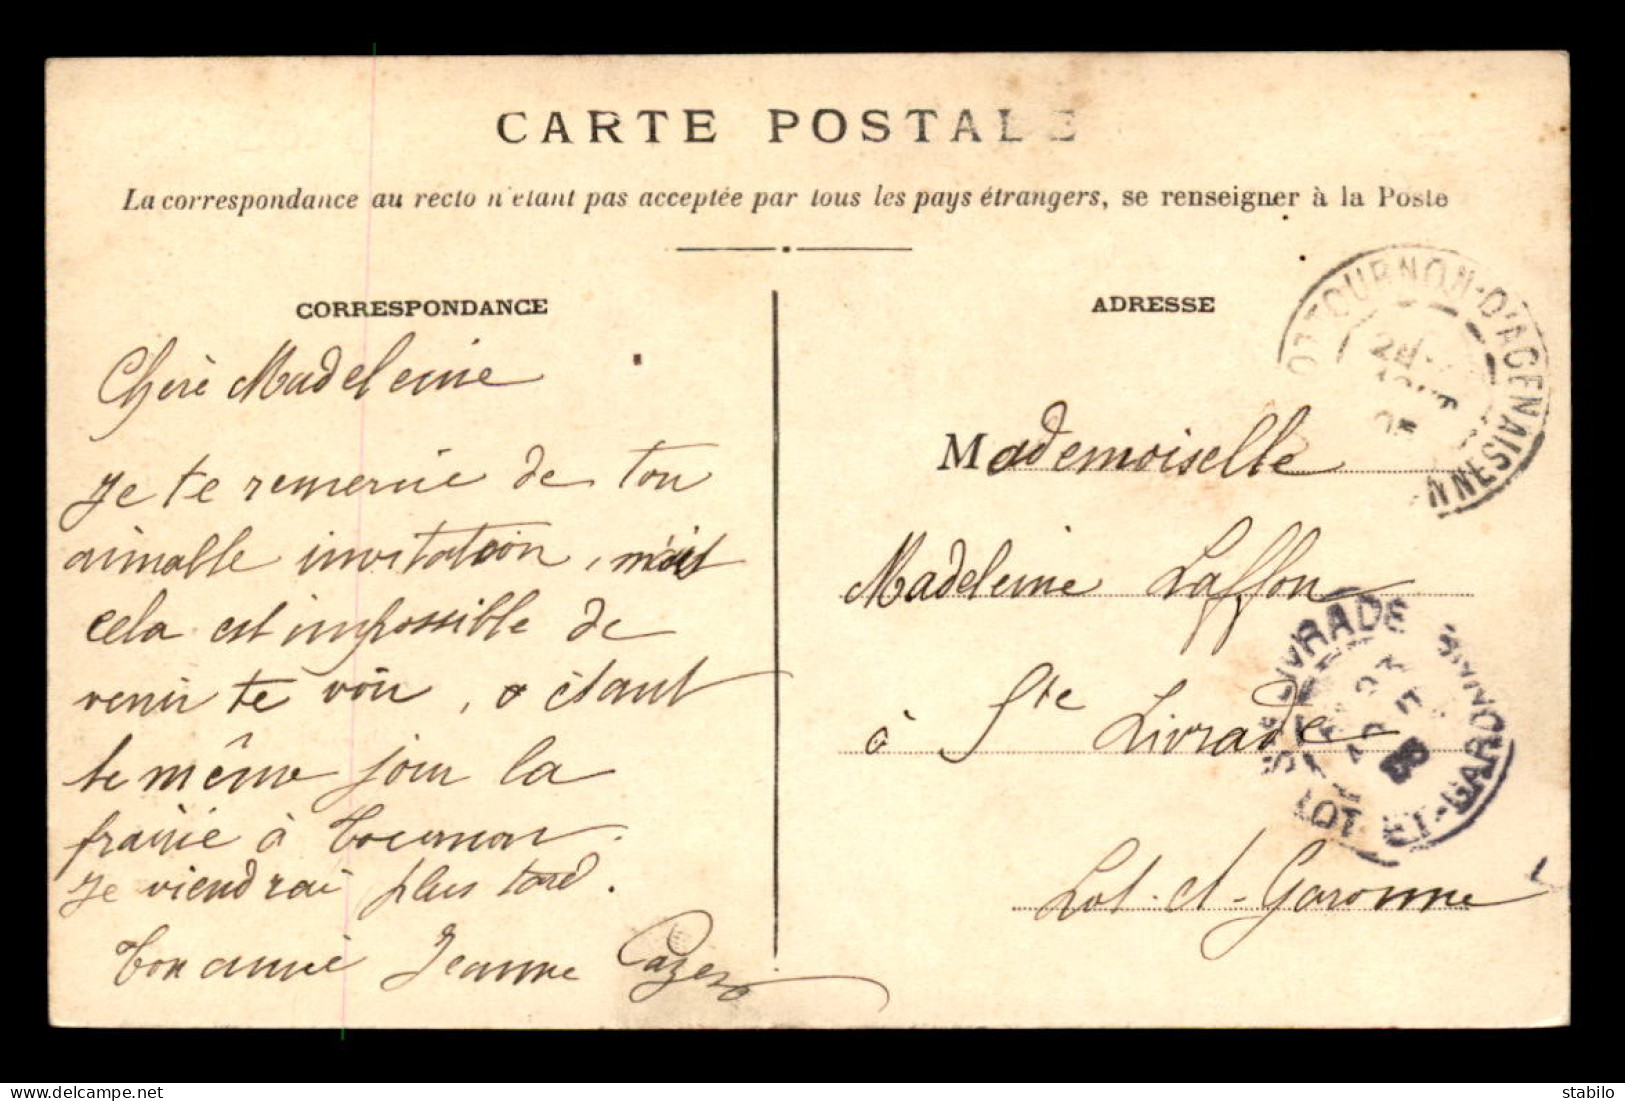 CARTE POSTALE
La correspondance au recto n'étant pas acceptée par tous les pays étrangers, se renseigner à la Poste
CORRESPONDANCE
Chère Madeleine
Je te remercie de ton
aimable invitation, mais
cela est impossible de
venir te voir, étant
le même jour la
frairie à Tournon.
Je viendrai plus tard.
Ton amie Jeanne Cazes
ADRESSE
Mademoiselle
Madeleine Laffon
à Ste Livrade
Lot-et-Garonne
TOURNON-D'AGENAIS
STE LIVRADE
LOT-ET-GARONNE
stabilo